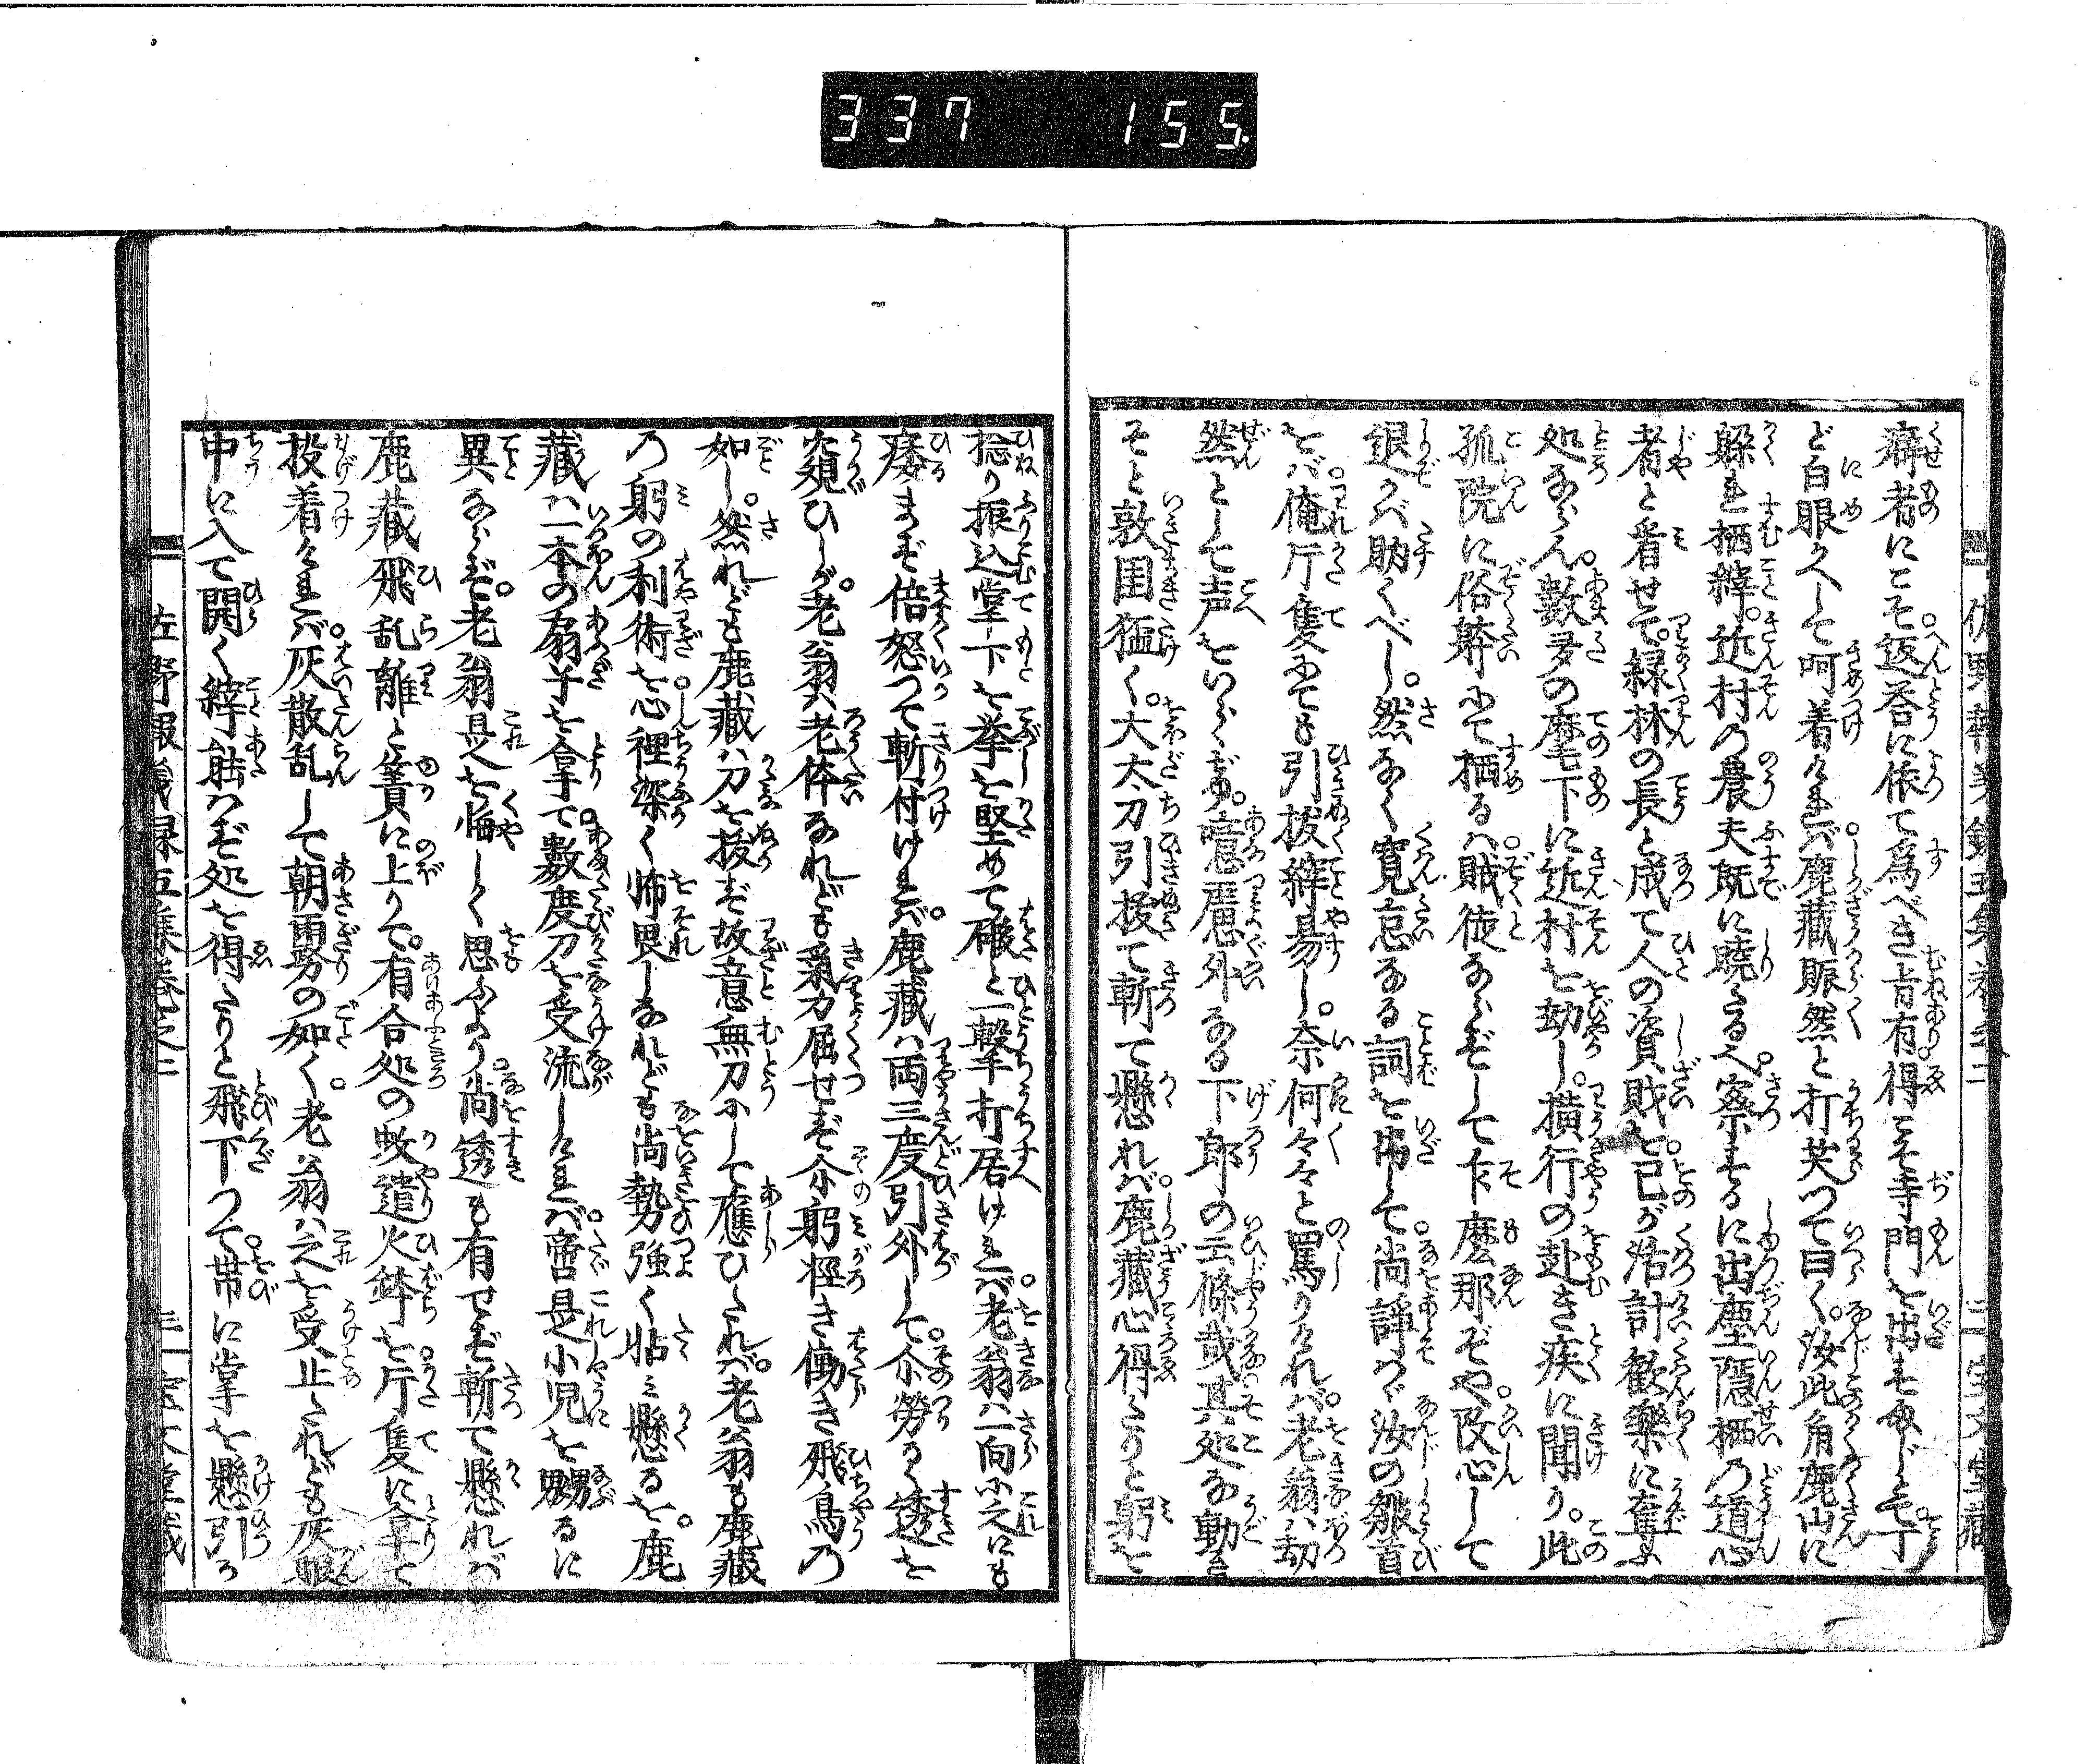 337 155.
癖者にこそ。返答に依て為べき旨有。得こそ寺門を出まじとて丁
ど白眼かへして呵着ければ鹿蔵賑然と打笑つて曰く。汝此角鹿山に
躱れ栖縡。近村の農夫既に暁たるべ。密察するに出塵隠栖の道心
者と看せて。緑林の長と成て人の資財を。己が活計歓樂に奪ふ
処ならん。数多の麾下に近村を劫し。横行の趣き疾に聞り。此
孤院に俗躰にて栖るハ。賊徒ならずして乍麽那ぞや。改心して
退かバ助くべし。然なく寛怠なる詞を出して。尚諍ハヾ汝の皺首
をバ。俺片隻にても引抜縡易し。奈何々々と罵りければ。老翁ハ劫
然として声をいらゝげ。噫慮外なる下郎の云條哉。其処な動き
そと敦圉猛く。大太刀引抜て斬て懸れバ。鹿蔵心得たりと躬を
捻り振込掌下を拳を堅めて礑と一撃打居ければ。老翁ハ一向に之にも
痿まず倍怒つて斬付ければ。鹿蔵ハ両三度引外して。尓勞るゝ透を
窺ひしが。老翁ハ老体なれども氣力屈せず。尓躬軽き働き飛鳥の
如し。然れども鹿蔵ハ刀を抜ず故意無刀にして應ひたれバ。老翁も鹿蔵
の躬の利術を。心裡深く怖畏しなれども尚勢強く帖ミ懸るを。鹿
蔵ハ一本の扇子を拿て。数度刀を受流しければ。啻是小児を嬲るに
異ならず。老翁是を悔しく思ふより。尚透も有せず斬て懸れバ
鹿蔵飛乱離と簀に上りて。有合処の蚊遣火鉢を。片隻に拿て
投着ければ。灰散乱して朝雰の如く。老翁ハ之を受止たれども灰眼
中に入て開く縡能ハず。処を得たりと飛下つて。帯に掌を懸引
佐野報義録五集巻之二 三 宝文堂蔵